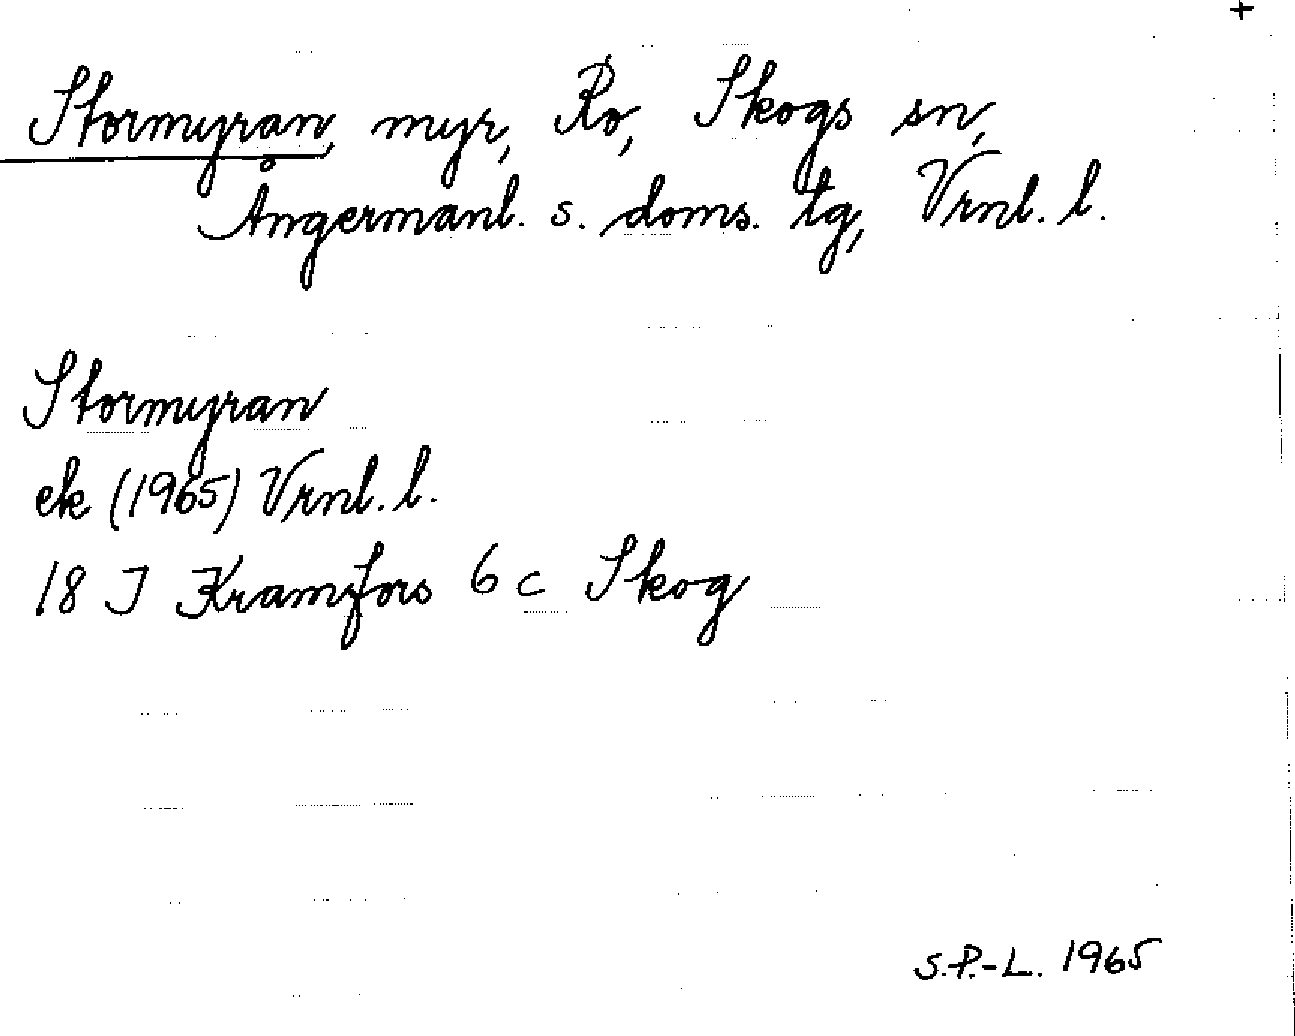 +
Stormyran, myr, Ro, Skogs sn,
Ångermanl. s. doms. tg, Vrnl. l.
Stormyran
ek (1965) Vrnl. l.
18 J Kramfors 6 c Skog
S.P.-L. 1965